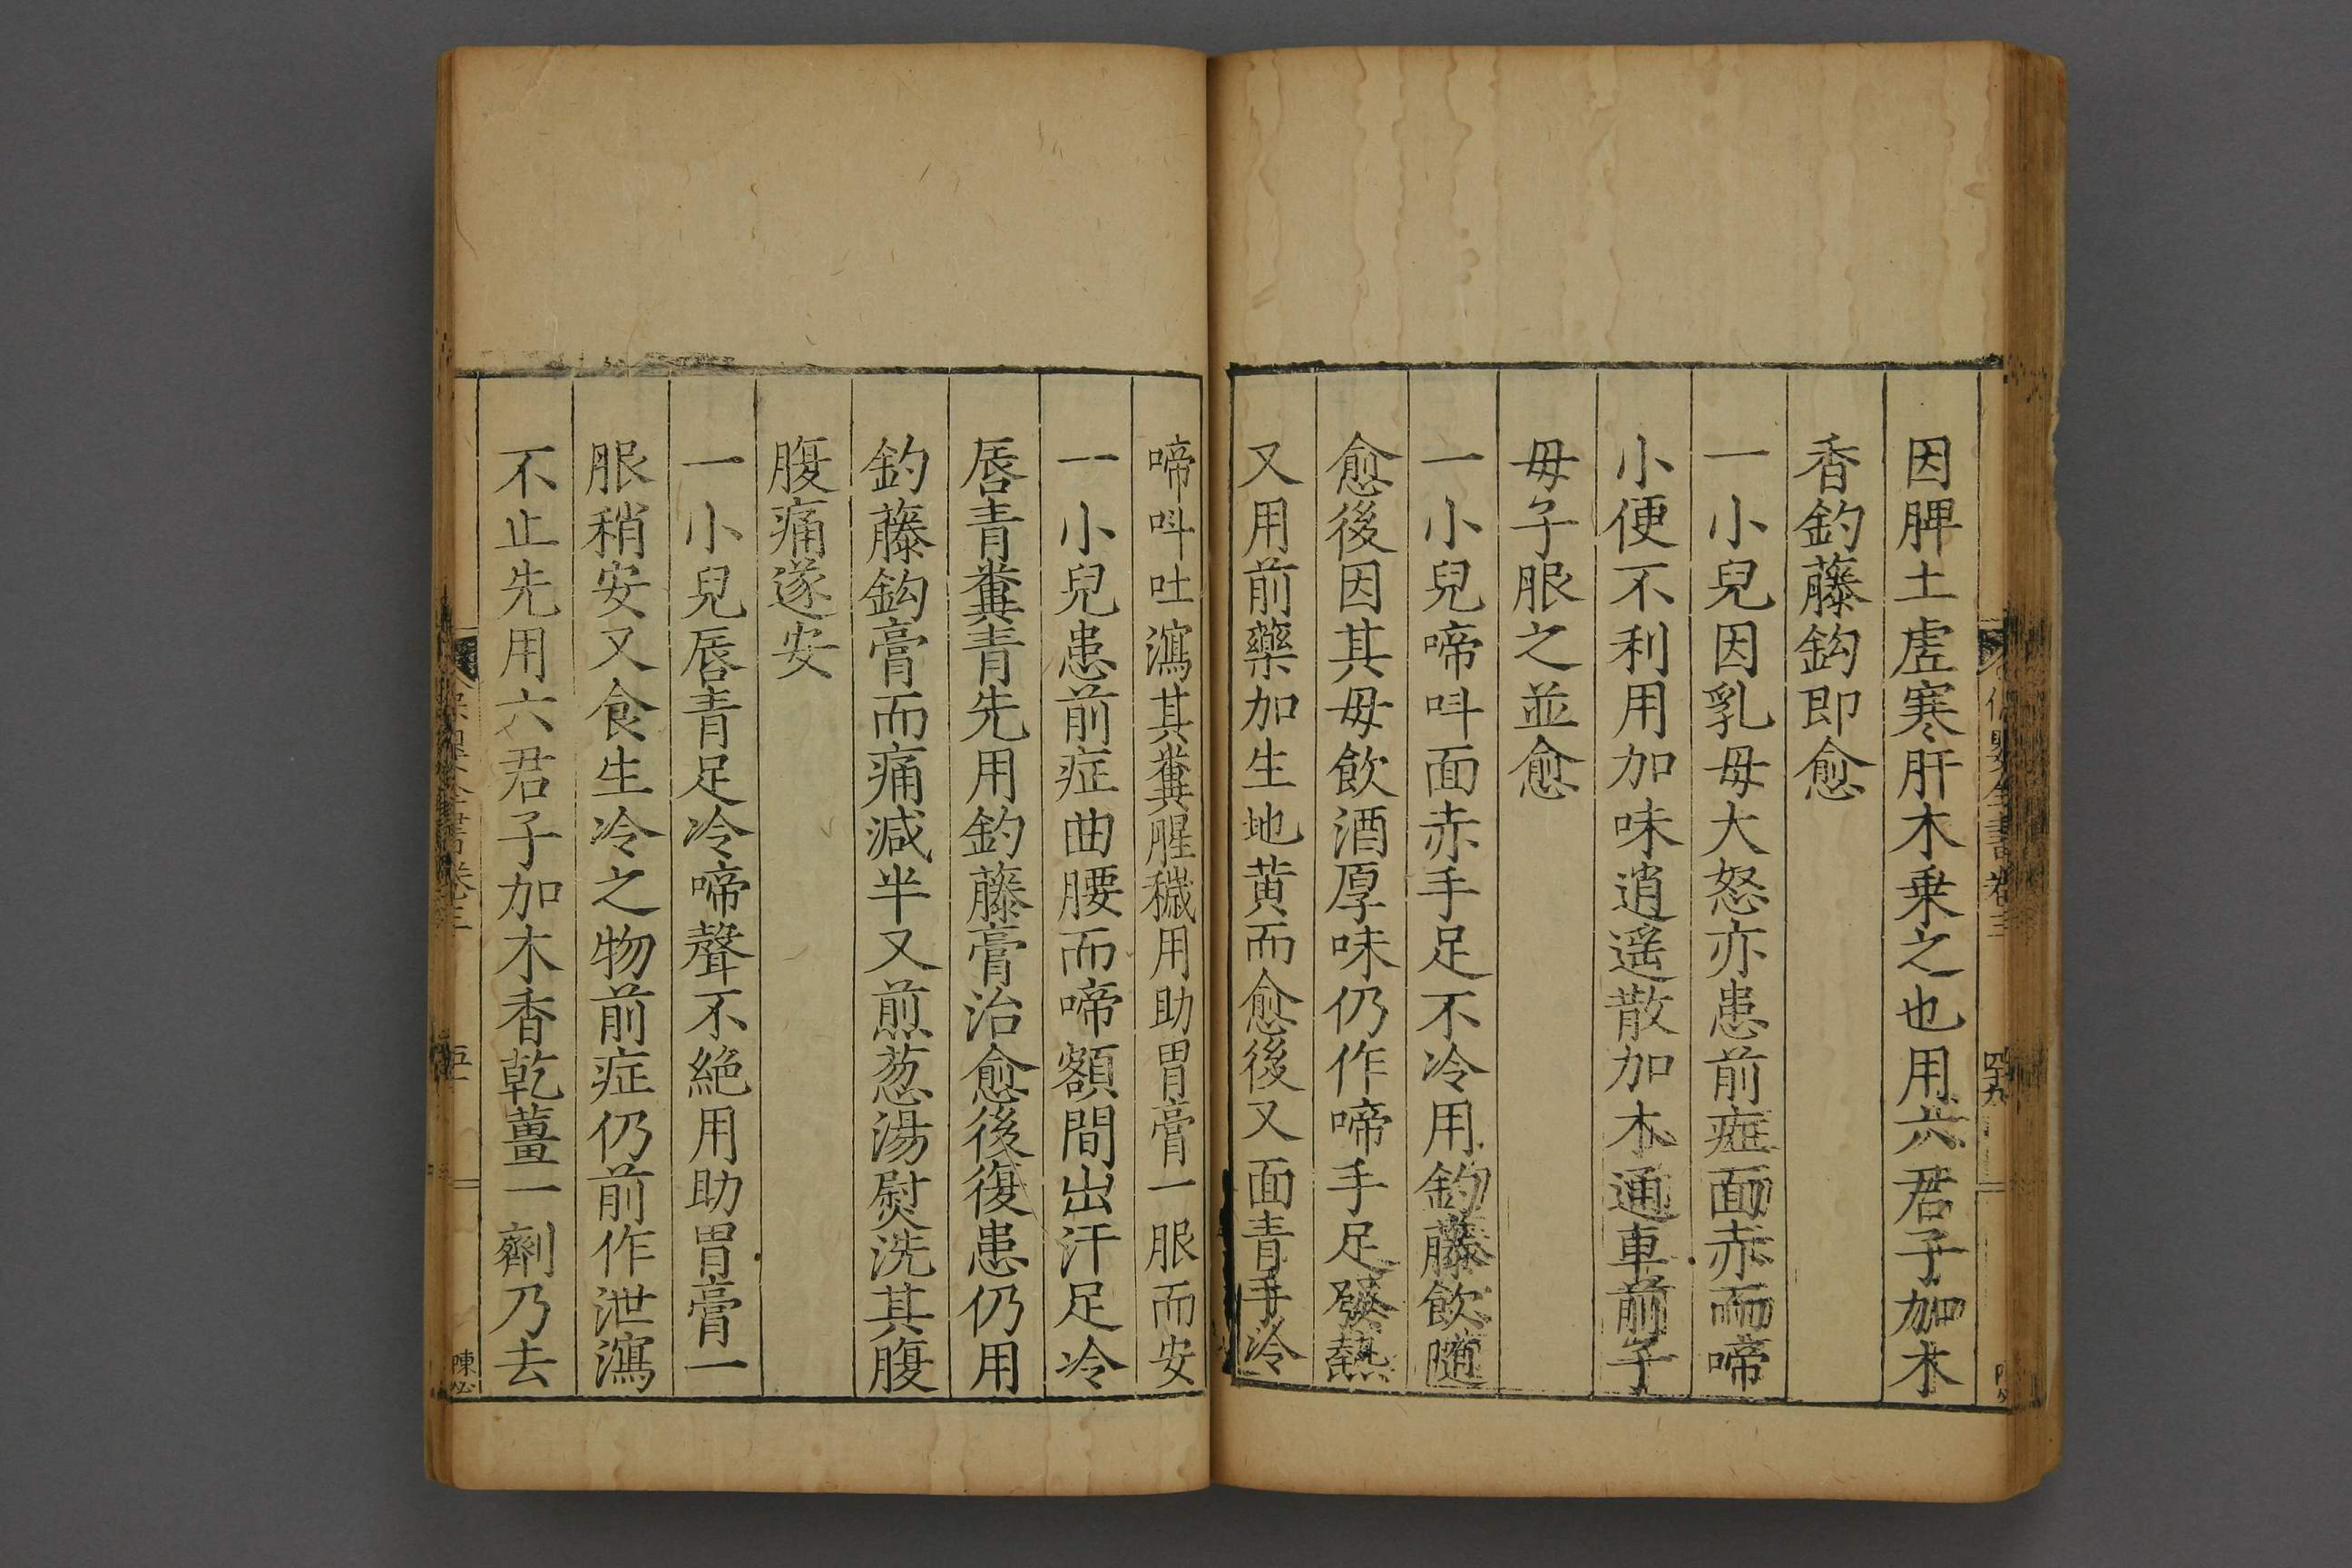 因脾土虛寒肝木乗之也用六君子加木
香釣藤鈎即愈
一小兒因乳母大怒亦患前症面赤而啼
小便不利用加味逍遥散加木通車前子
母子服之並愈
一小兒啼呌面赤手足不冷用釣藤飲隨
愈後因其母飲酒厚味仍作啼手足發熱
又用前藥加生地黄而愈後又面青手冷
啼呌吐瀉其糞腥穢用助胃膏一服而安
一小兒患前症曲腰而啼額間出汗足冷
唇青糞青先用釣藤膏治愈後復患仍用
釣藤鈎膏而痛減半又煎葱湯熨洗其腹
腹痛遂安
一小兒唇青足冷啼聲不絶用助胃膏一
服稍安又食生冷之物前症仍前作泄瀉
不止先用六君子加木香乾薑一劑乃去